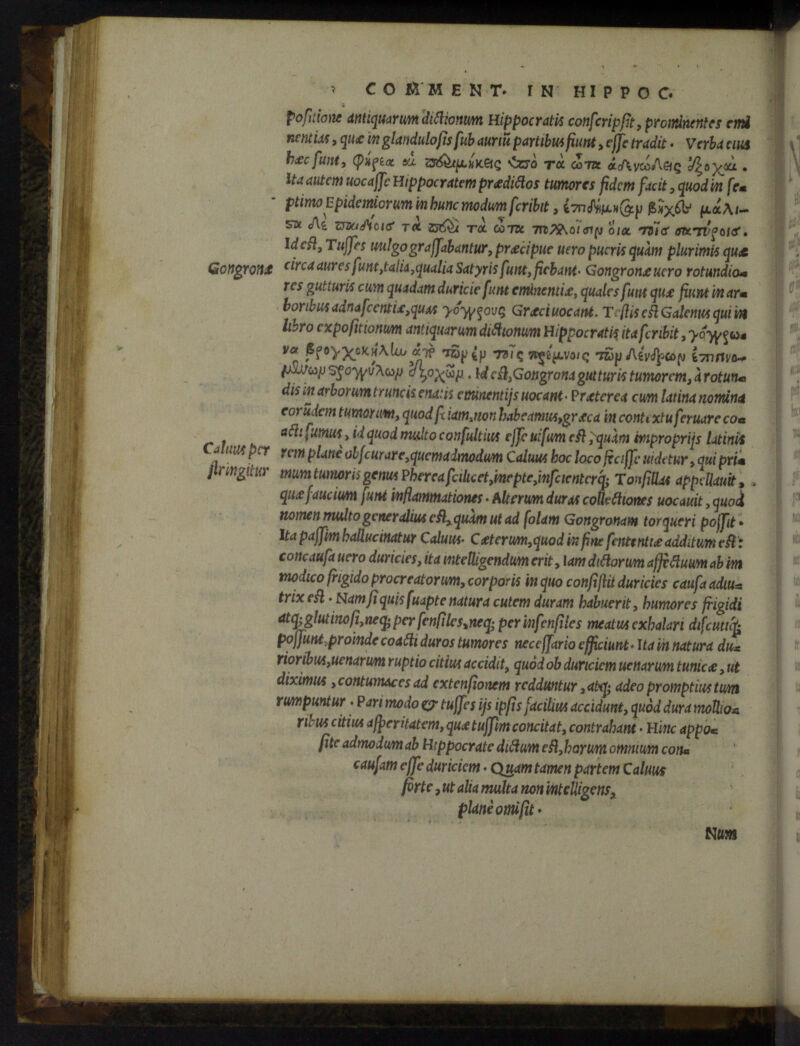 COMMENT. IN HIPPOC.
positione antiquarum dictionum Hippocratis conscripsit, prominentes emi
nentias, quæ in glandulosis sub auriū partibus fiunt, esse tradit. Verba eius
hæc sunt, φήρεα αἱ περιμήκεις ὑπὸ τὰ ὦτα ἀδενώδεις ἐξοχαί.
Ita autem uocasse Hippocratem prædictos tumores fidem facit, quod in se=
ptimo Epidemiorum in hunc modum scribit, ἐπεδήμησαν βῆχες μάλι-
στα δὲ παιδίοισ τὰ περὶ τὰ ὦτα πολλοῖσιν οἷα τοῖσ σατύροισ.
Id est, Tusses uulgo grassabantur, præcipue uero pueris quàm plurimis quæ
Gongronæ
circa aures sunt, talia, qualia Satyris sunt, fiebant. Gongronæ uero rotundio=
res gutturis cum quadam duricie sunt eminentiæ, quales sunt quæ fiunt in ar=
boribus adnascentiæ, quas γόγγρους Græci uocant. Testis est Galenus qui in
libro expositionum antiquarum dictionum Hippocratis ita scribit, γόγγρω=
να βρογχοκήλην ἀπὸ τῶν ἐν τοῖς πρέμνοις τῶν δένδρων ἐπιγινο-
μένων στρογγύλων ἐξοχῶν. Id est, Gongrona gutturis tumorem, à rotun=
dis in arborum truncis enatis eminentijs uocant. Præterea cum latina nomina
eorūdem tumorum, quod sciam, non habeamus, græca in contextu seruare co=
acti sumus, id quod multo consultius esse uisum est, quàm improprijs latinis
Caluus per
stringitur
rem planè obscurare, quemadmodum Caluus hoc loco fecisse uidetur, qui pri=
mum tumoris genus Pherea scilicet, inepte, inscienterq; Tonsillas appellauit,
quæ faucium sunt inflammationes. Alterum duras collectiones uocauit, quod
nomen multo generalius est, quàm ut ad solam Gongronam torqueri possit.
Ita passim hallucinatur Caluus. Cæterum, quod in fine sententiæ additum est:
concausa uero duricies, ita intelligendum erit, iam dictorum affectuum ab im
modico frigido procreatorum, corporis in quo consistit duricies causa adiu=
trix est. Nam si quis suapte natura cutem duram habuerit, humores frigidi
atq; glutinosi, neq; per sensiles, neq; per insensiles meatus exhalari discutiq;
possunt, proinde coacti duros tumores necessario efficiunt. Ita in natura du=
rioribus, uenarum ruptio citius accidit, quòd ob duriciem uenarum tunicæ, ut
diximus, contumaces ad extensionem redduntur, atq; adeo promptius tum
rumpuntur. Pari modo & tusses ijs ipsis facilius accidunt, quòd dura mollio=
ribus citius asperitatem, quæ tussim concitat, contrahant. Hinc appo=
site admodum ab Hippocrate dictum est, horum omnium con=
causam esse duriciem. Quam tamen partem Caluus
forte, ut alia multa non intelligens,
planè omisit.
Num